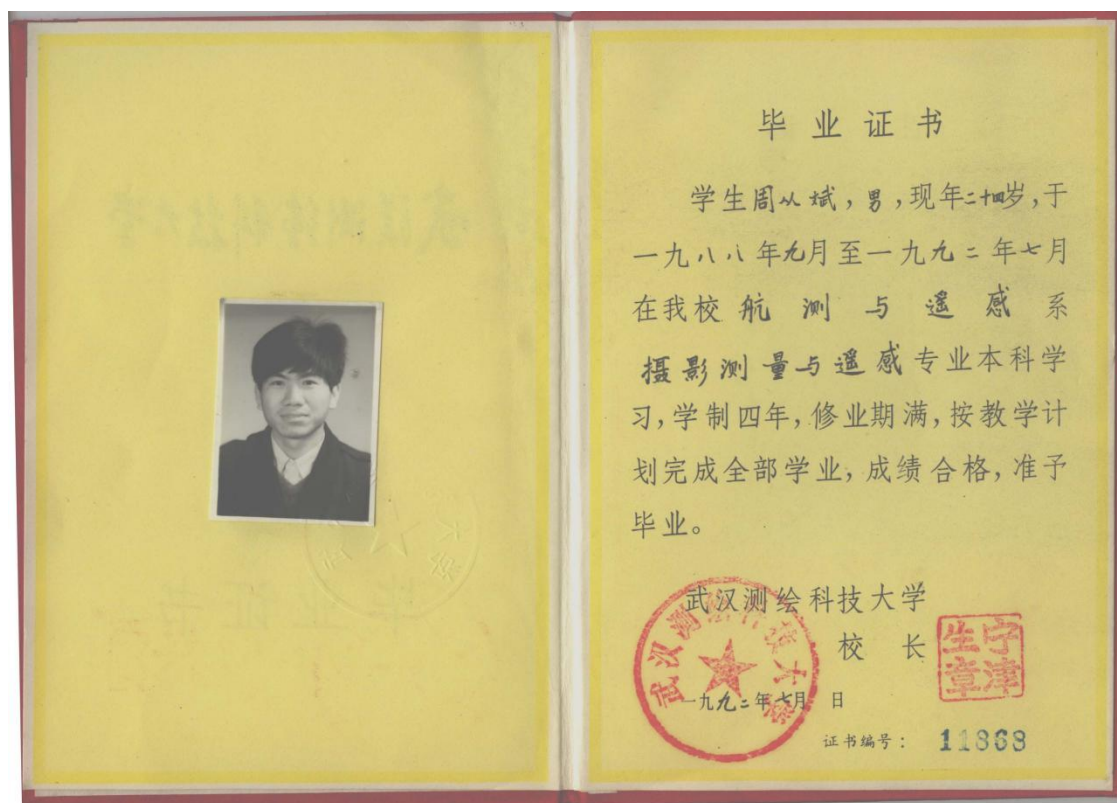 毕业证书
学生周从斌,男,现年二十四岁,于
一九八八年九月至一九九二年七月
在我校航测与遥感系
摄影测量与遥感专业本科学
习,学制四年,修业期满,按教学计
划完成全部学业,成绩合格,准予
毕业。
武汉测绘科技大学
校长
宁津生章
武汉测绘科技大学
一九九二年七月 日
证书编号: 11868